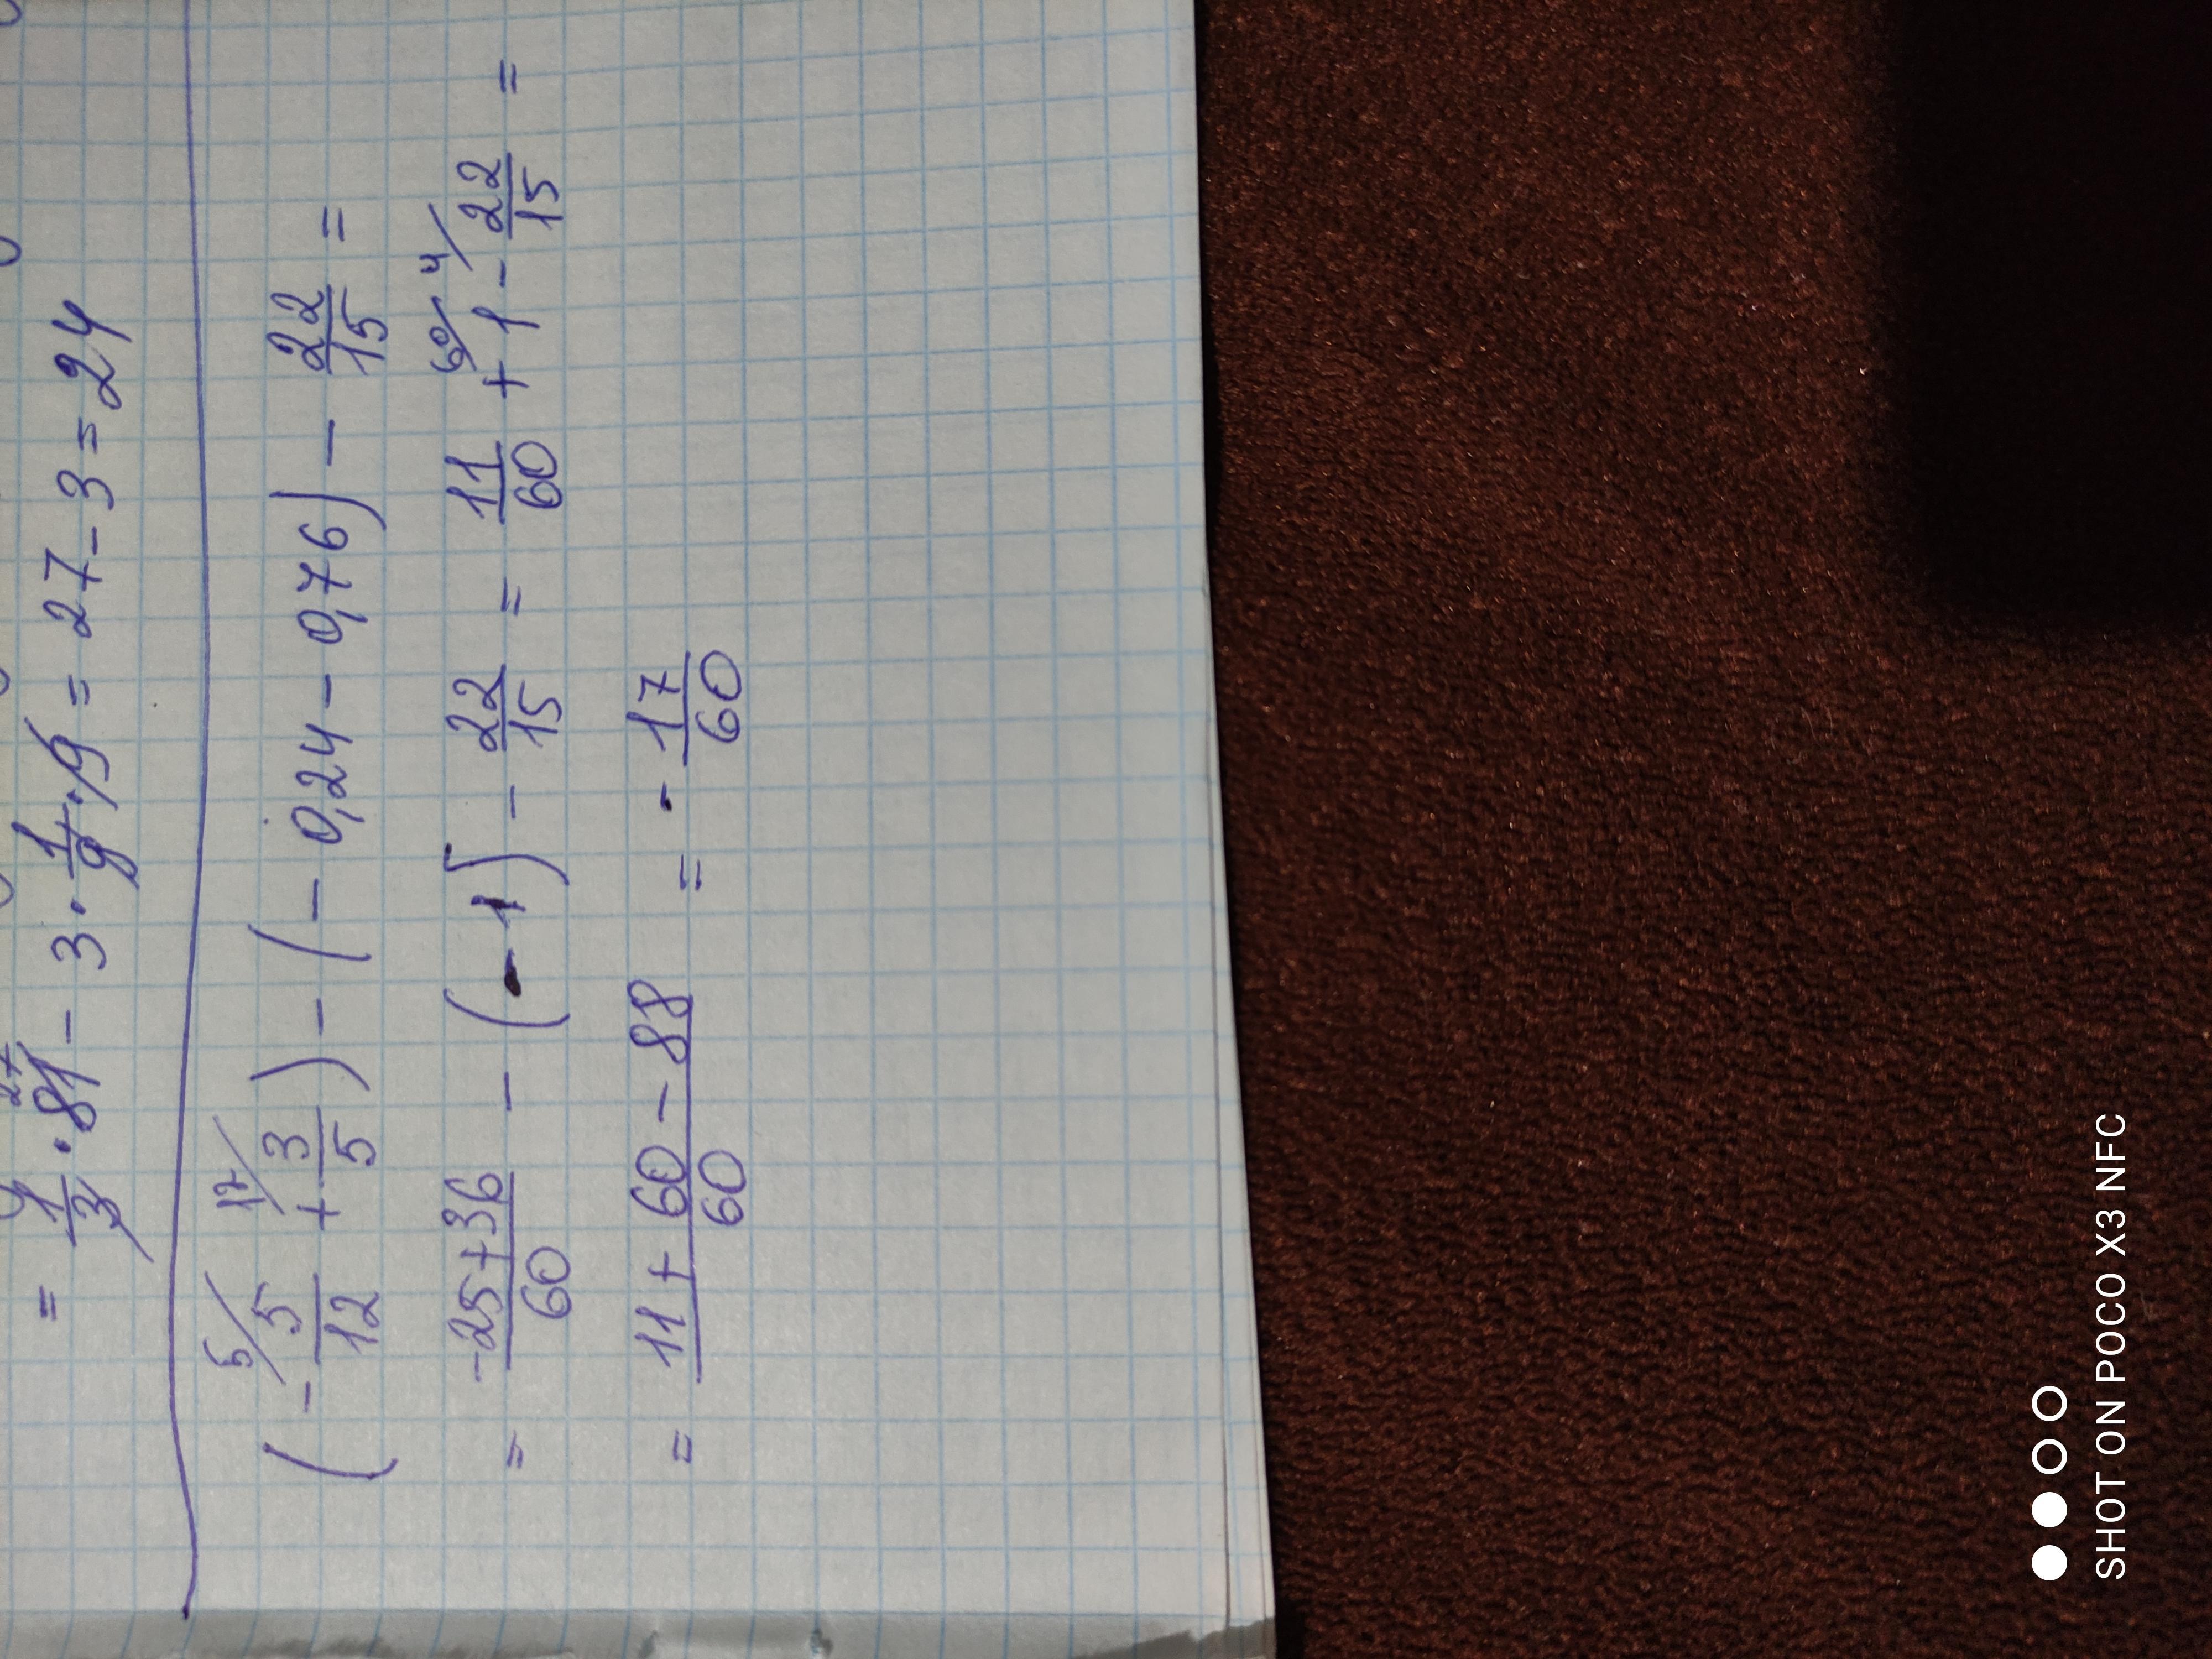 = 1/3 · 81 27 - 3 · 1/9 · 9 = 27 - 3 = 24
( - 5/12 5/ + 3/5 12/ ) - ( - 0,24 - 0,76 ) - 22/15 =
= -25+36/60 - ( - 1 ) - 22/15 = 11/60 + 1 60/ - 22/15 4/ =
= 11 + 60 - 88/60 = - 17/60
SHOT ON POCO X3 NFC